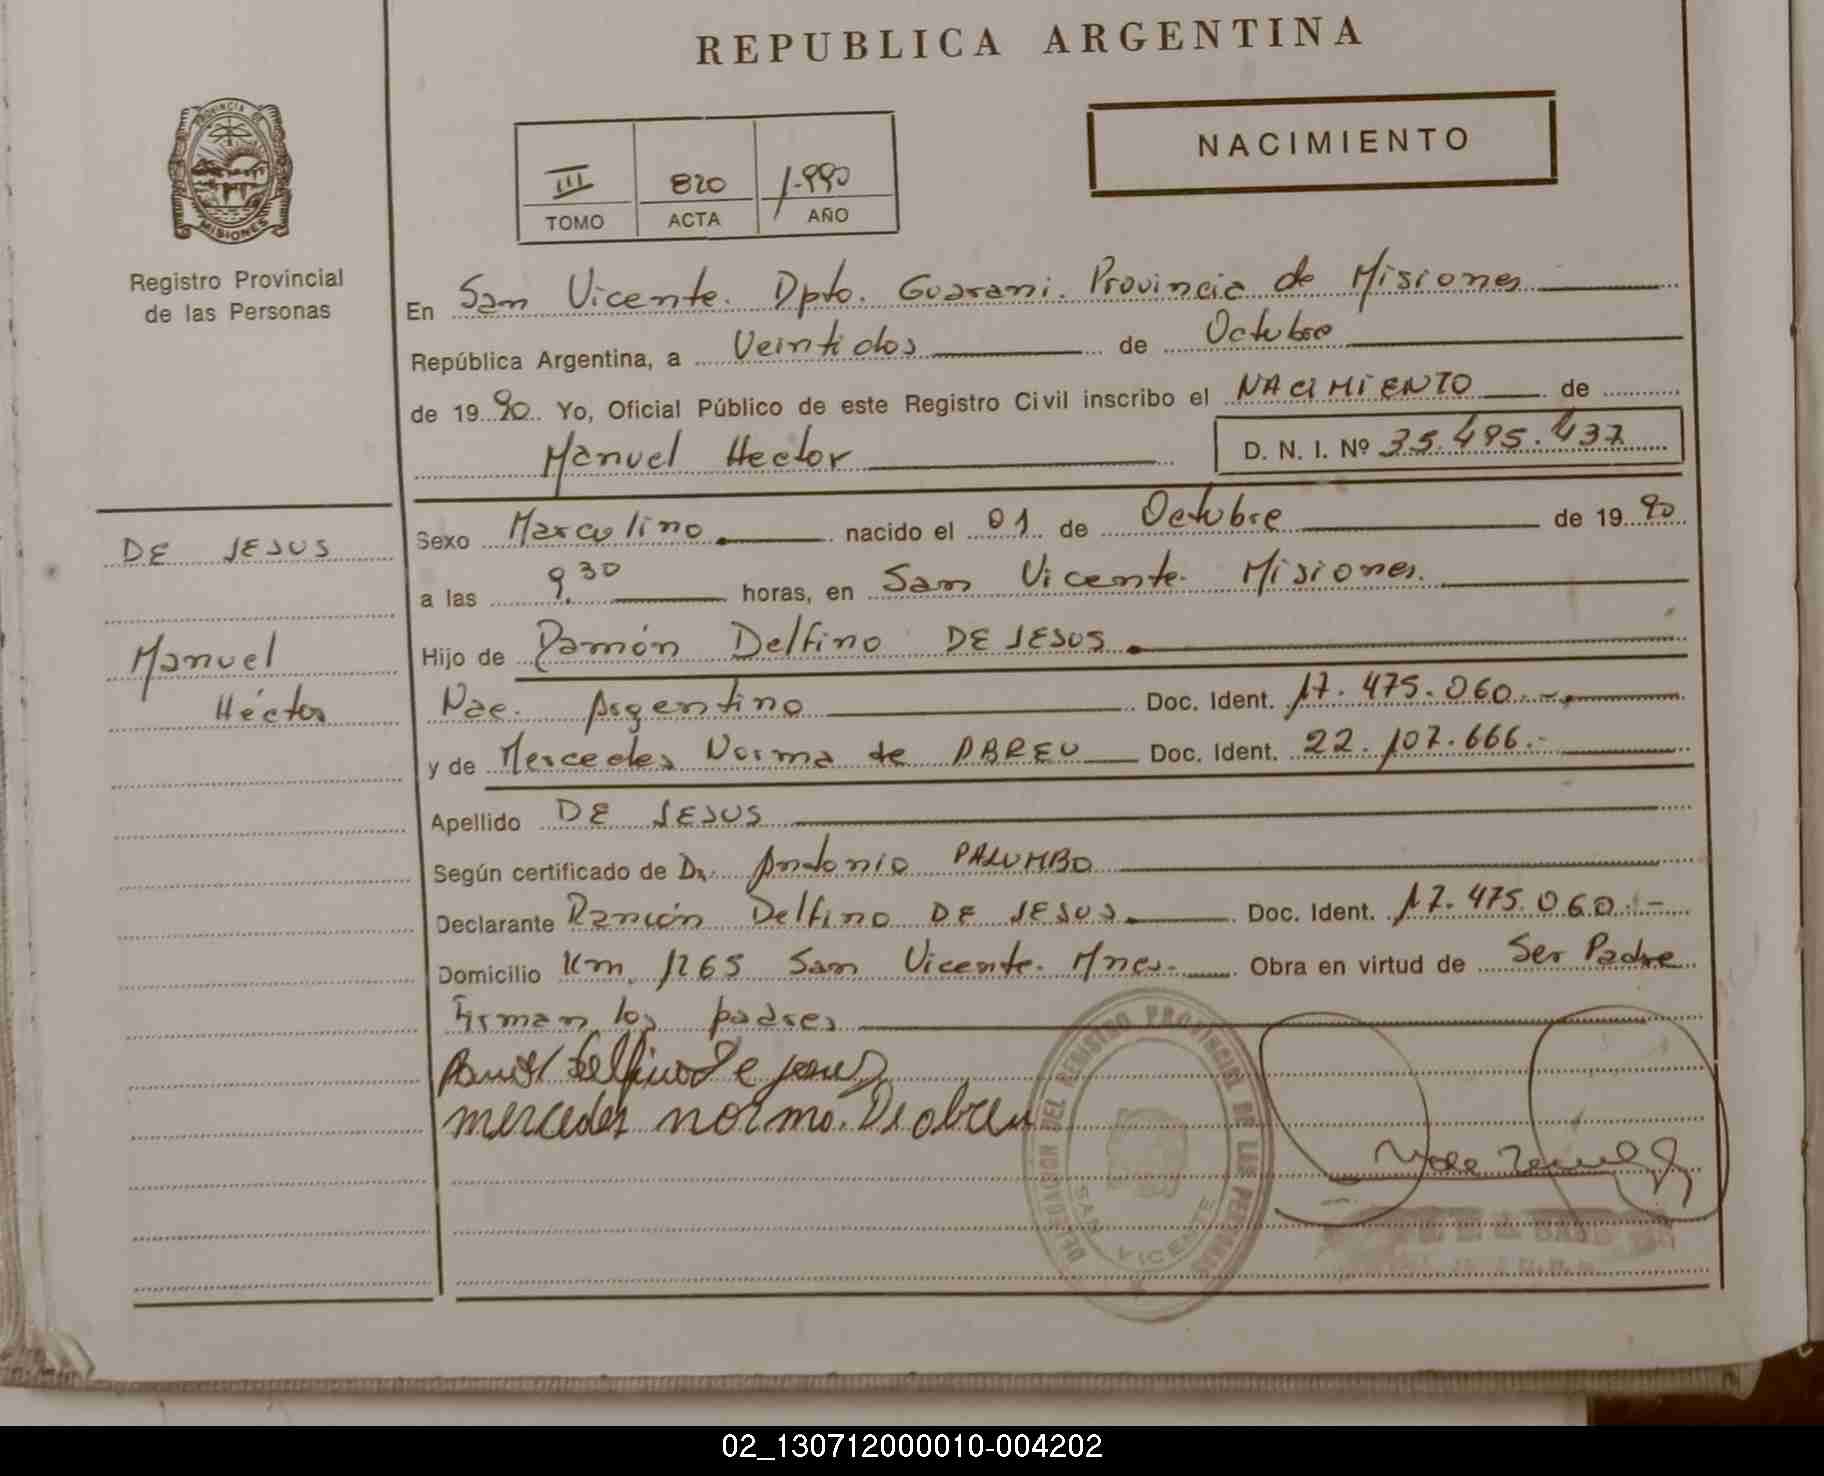 REPUBLICA ARGENTINA
PROVINCIA DE
MISIONES
Registro Provincial
de las Personas
III 820 1.990
TOMO ACTA AÑO
NACIMIENTO
En San Vicente. Dpto. Guarani. Provincia de Misiones
República Argentina, a Veintidos de Octubre
de 1990 Yo, Oficial Público de este Registro Civil inscribo el NACIMIENTO de
Manuel Hector D. N. I. Nº 35.495.437
Sexo Masculino nacido el 01 de Octubre de 1990
a las 9.30 horas, en San Vicente. Misiones.
Hijo de Ramón Delfino DE JESUS
Nac. Argentino Doc. Ident. 17.475.060.-
y de Mercedes Norma de ABREU Doc. Ident. 22.107.666.-
Apellido DE JESUS
Según certificado de Dr. Antonio PALUMBO
Declarante Ramón Delfino DE JESUS Doc. Ident. 17.475.060.-
Domicilio Km. 1265 San Vicente. Mnes. Obra en virtud de Ser Padre
Firman los padres
Ramon Delfino de jesus
mercedes norma. De abreu
DE JESUS
Manuel
Héctor
DELEGACION DEL REGISTRO PROVINCIAL DE LAS PERSONAS
SAN VICENTE
02_130712000010-004202